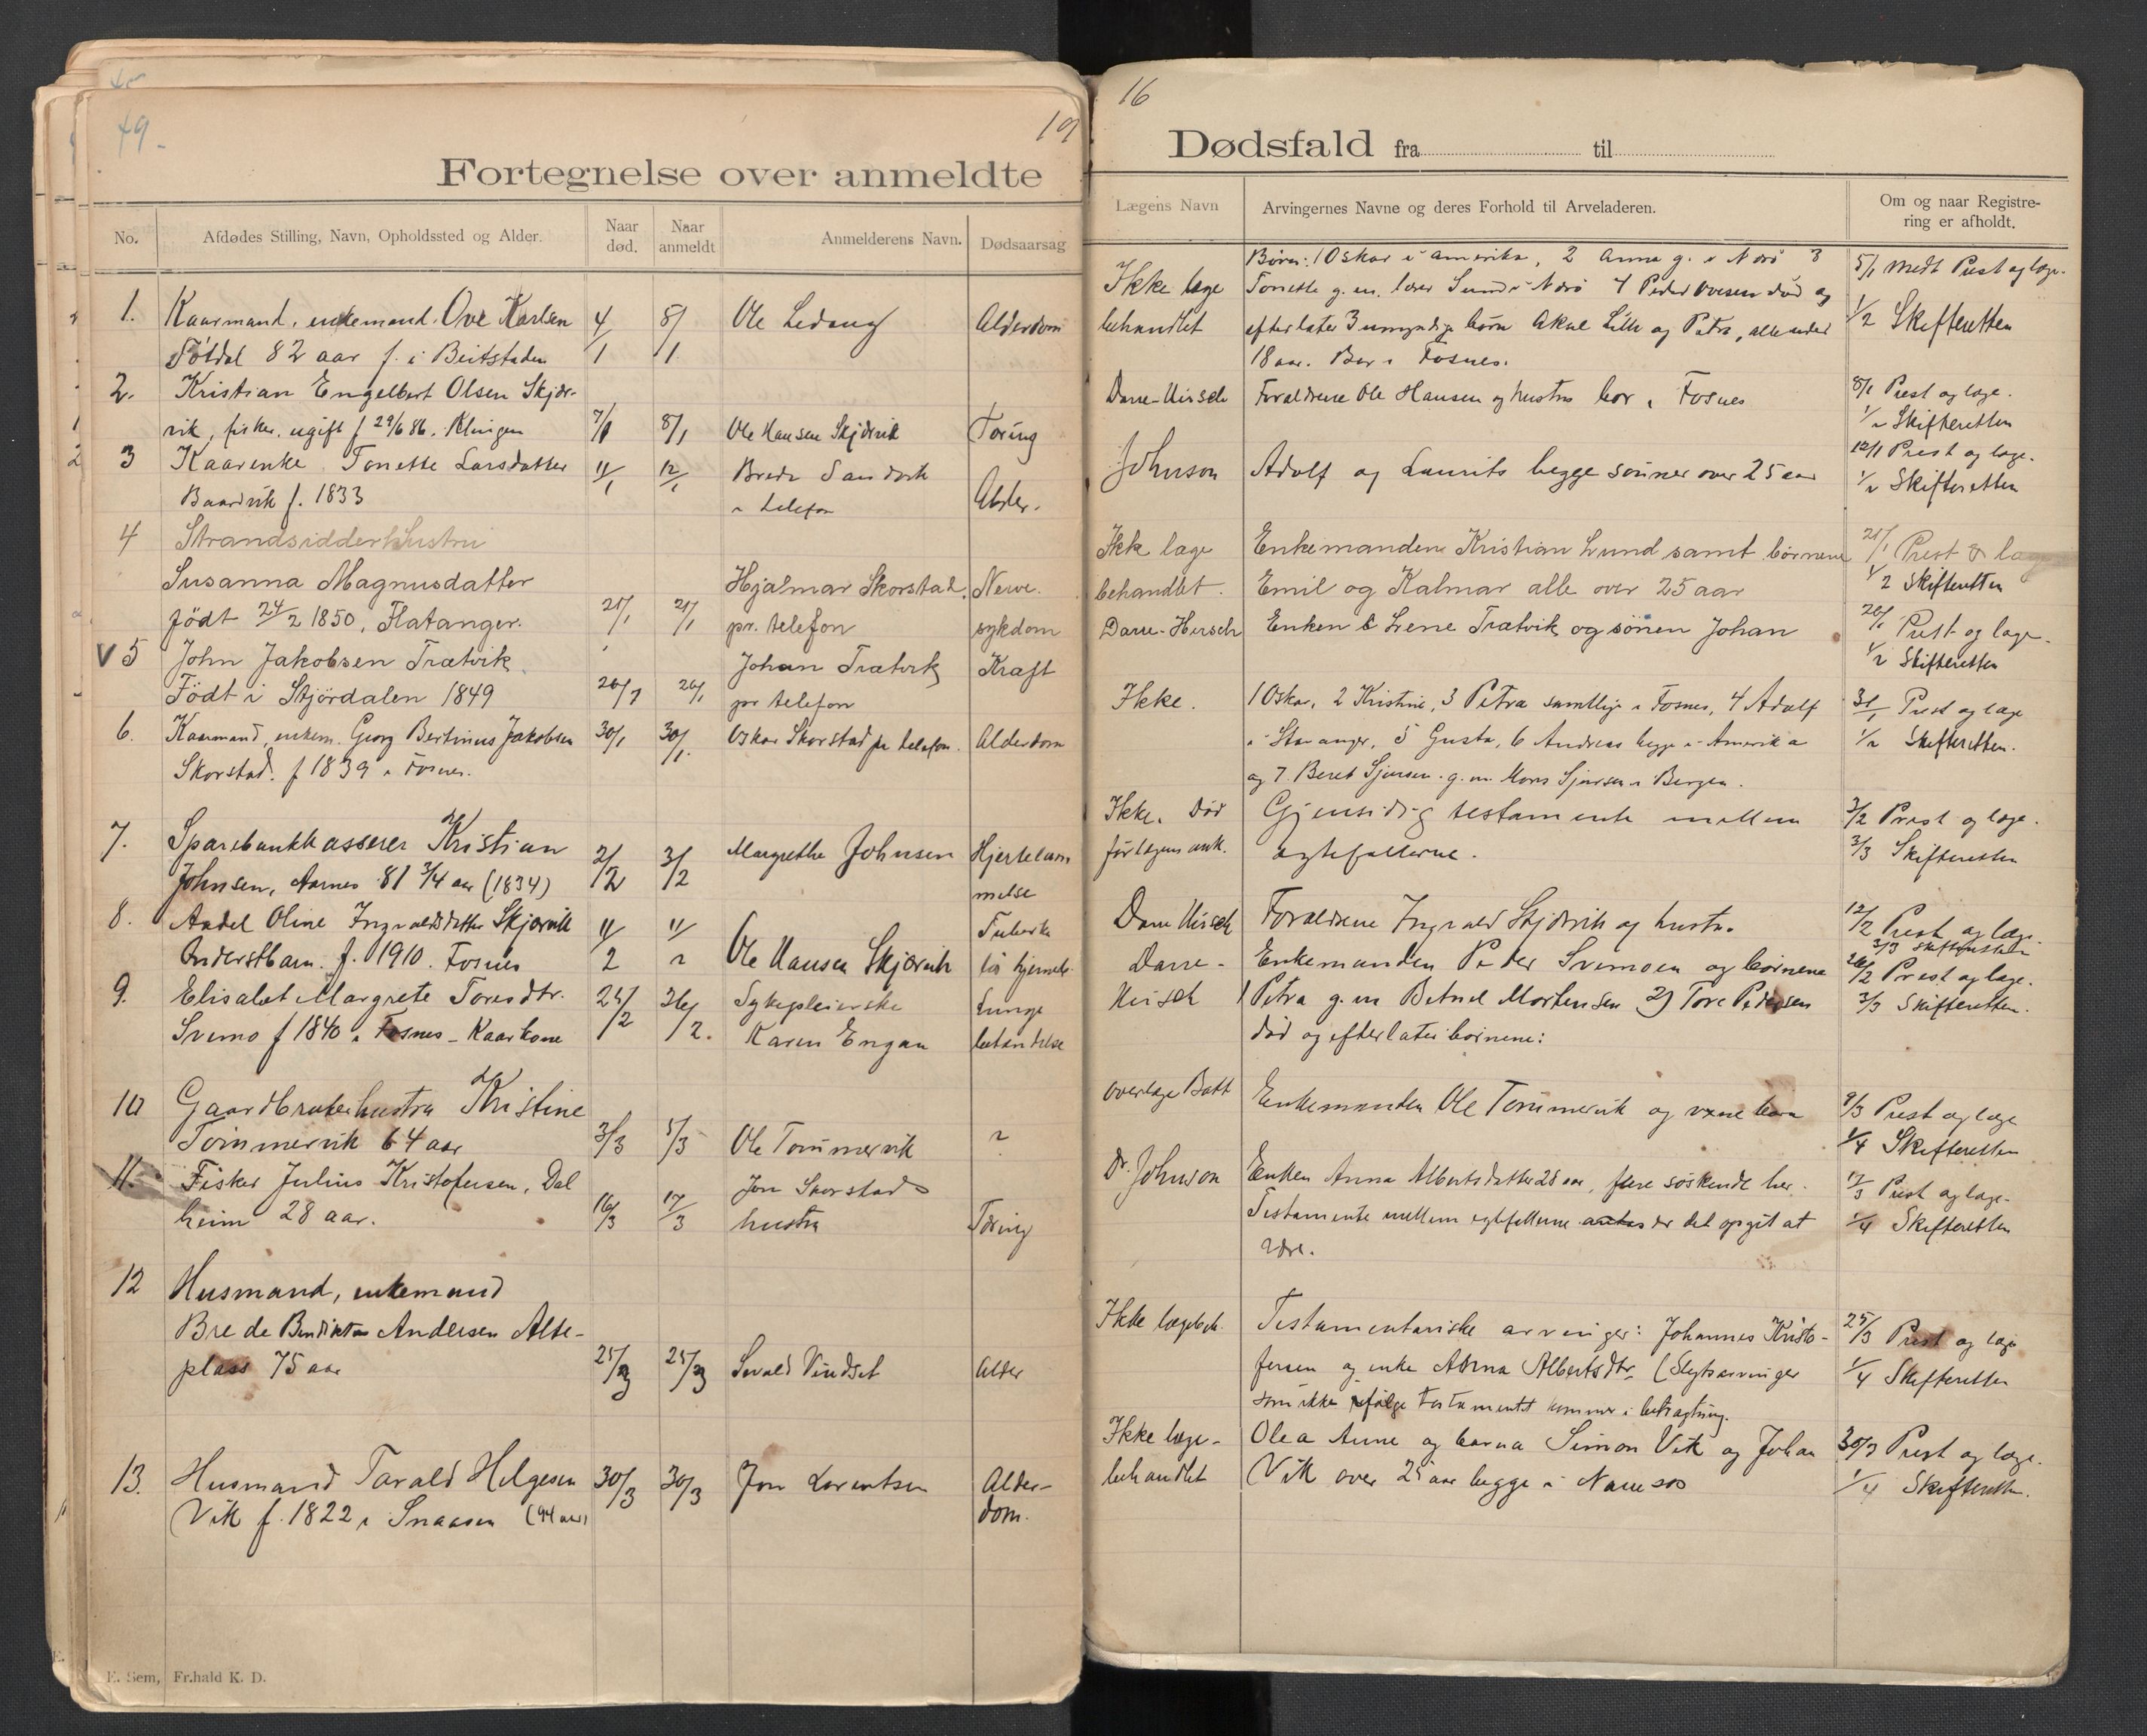 49.
19
Fortegnelse over anmeldte
No.
Afdødes Stilling, Navn, Opholdssted og Alder.
Naar død.
Naar anmeldt
Anmelderens Navn.
Dødsaarsag
1. Kaarmand, enkemand. Ove Karlsen 4/1 8/1 Ole Ledang Alderdom
82 aar f. i Beitstaden
2. Kristian Engelbert Olsen Skjær-
vik, fisker, ugift f 29/6 86. Klingen 7/1 8/1 Ole Hansen Skjærvik Tæring
3 Kaarenke Tonette Larsdatter 11/1 12/1 Brede Sandvik
Baardvik f. 1833 i telefon Alder.
4 Strandsidderhustru
Susanna Magnusdatter Hjalmar Skorstad. Nerve.
født 24/2 1850, Flatanger. 21/1 21/1 pr. telefon sykdom
V 5 John Jakobsen Trætvik Johan Trætvik Kræft
Født i Stjördalen 1849 20/1 20/1 pr telefon
6. Kaarmand, enkem. Georg Bertinus Jakobsen 30/1 30/1. Oskar Skorstad pr telefon. Alderdom
Skorstad. f 1839 i Fosnes.
7. Sparebankkasserer Kristian 2/2 3/2 Margrethe Johnsen Hjertelam
Johnsen, Aarnes 81 3/4 aar (1834) melse
8. Aadel Oline Ingvaldsdatter Skjærvik 11/2 11/2 Ole Hansen Skjærvik Tuberku
Inderstbarn. f. 1910. Fosnes løs hjerneb.
9. Elisabet Margrete Toresdtr. 25/2 26/2. Sykepleierske Lunge
Svemo f 1840 i Fosnes - Kaarkone Karen Engan betændelse
10 Gaardbrukerhustru Kristine
Tømmervik 64 aar 3/3 5/3 Ole Tømmervik ?
11. Fisker Julius Kristofersen, Dal Jon Skorstads
heim 28 aar. 16/3 17/3 hustru Tæring
12 Husmand, enkemand
Brede Bendiktus Andersen Alte-
plass 75 aar 25/3 25/3 Sevald Vindset Alder
13. Husmand Tarald Helgesen 30/3 30/3 Jon Lorentsen Alder-
Vik f. 1822 i Snaasen (94 aar) dom.
E. Sem, Fr.hald K. D.
16
Dødsfald fra til
Lægens Navn
Arvingernes Navne og deres Forhold til Arveladeren.
Om og naar Registre-
ring er afholdt.
Børn: 1 Oskar i Amerika, 2 Anna g. i Nærö 3 5/1 Medt Prest og læge.
Ikke læge Tonette g. m. lærer Sund i Nærö 4 Peder Ovesen død og
behandlet efterlater 3 umyndige børn Akul Lilli og Petra, alle under 1/2 Skifteretten
18 aar. Bor i Fosnes.
Darre-Hirsch Forældrene Ole Hansen og hustru bor i Fosnes 8/1 Prest og læge.
1/2 Skifteretten
Johnson Adolf og Laurits begge sønner over 25 aar 12/1 Prest og læge.
1/2 Skifteretten
Ikke læge Enkemanden Kristian Lund samt børnene 21/1 Prest & læge
behandlet. Emil og Kalmar alle over 25 aar 1/2 Skifteretten
Darre-Hirsch Enken Lene Trætvik og sönen Johan 20/1 Prest og læge.
1/2 Skifteretten
Ikke. 1 Oskar, 2 Kristine, 3 Petra samtlige i Fosnes, 4 Adolf 31/1 Prest og læge
i Stavanger, 5 Gusta, 6 Andreas begge i Amerika 1/2 Skifteretten.
og 7. Beret Sjursen. g. m. Mons Sjursen i Bergen.
Ikke. Død Gjensidig testamente mellem 3/2 Prest og læge.
før lægens ank. ægtefællerne. 3/3 Skifteretten
Darre Hirsch Forældrene Ingvald Skjærvik og hustru. 12/2 Prest og læge.
3/3 Skifteretten
Darre- Enkemanden Peder Svemoen og børnene 26/2 Prest og læge.
Hirsch 1 Petra g. m Betuel Mortensen 2) Tore Pedersen 3/3 Skifteretten.
död og efterlater børnene:
Overlæge Batt Enkemanden Ole Tømmervik og voxne barn 9/3 Prest og læge
1/4 Skifteretten
Dr. Johnson Enken Anna Albertsdatter 28 aar, flere søskende her. 17/3 Prest og læge-
Testamente mellem egtefellerne er det opgit at 1/4 Skifteretten
være.
Ikke lægebeh. Testamentariske arvinger: Johannes Kristo- 25/3 Prest og læge
fersen og enke Anna Albertsdtr. (Slegtsarvinger 1/4 Skifteretten
som ikke ifølge testamentet kommer i betragtning.
Ikke læge- Olea Anne og barna Simon Vik og Johan 30/3 Prest og læge.
behandlet Vik over 25 aar begge i Namsos 1/4 Skifteretten.